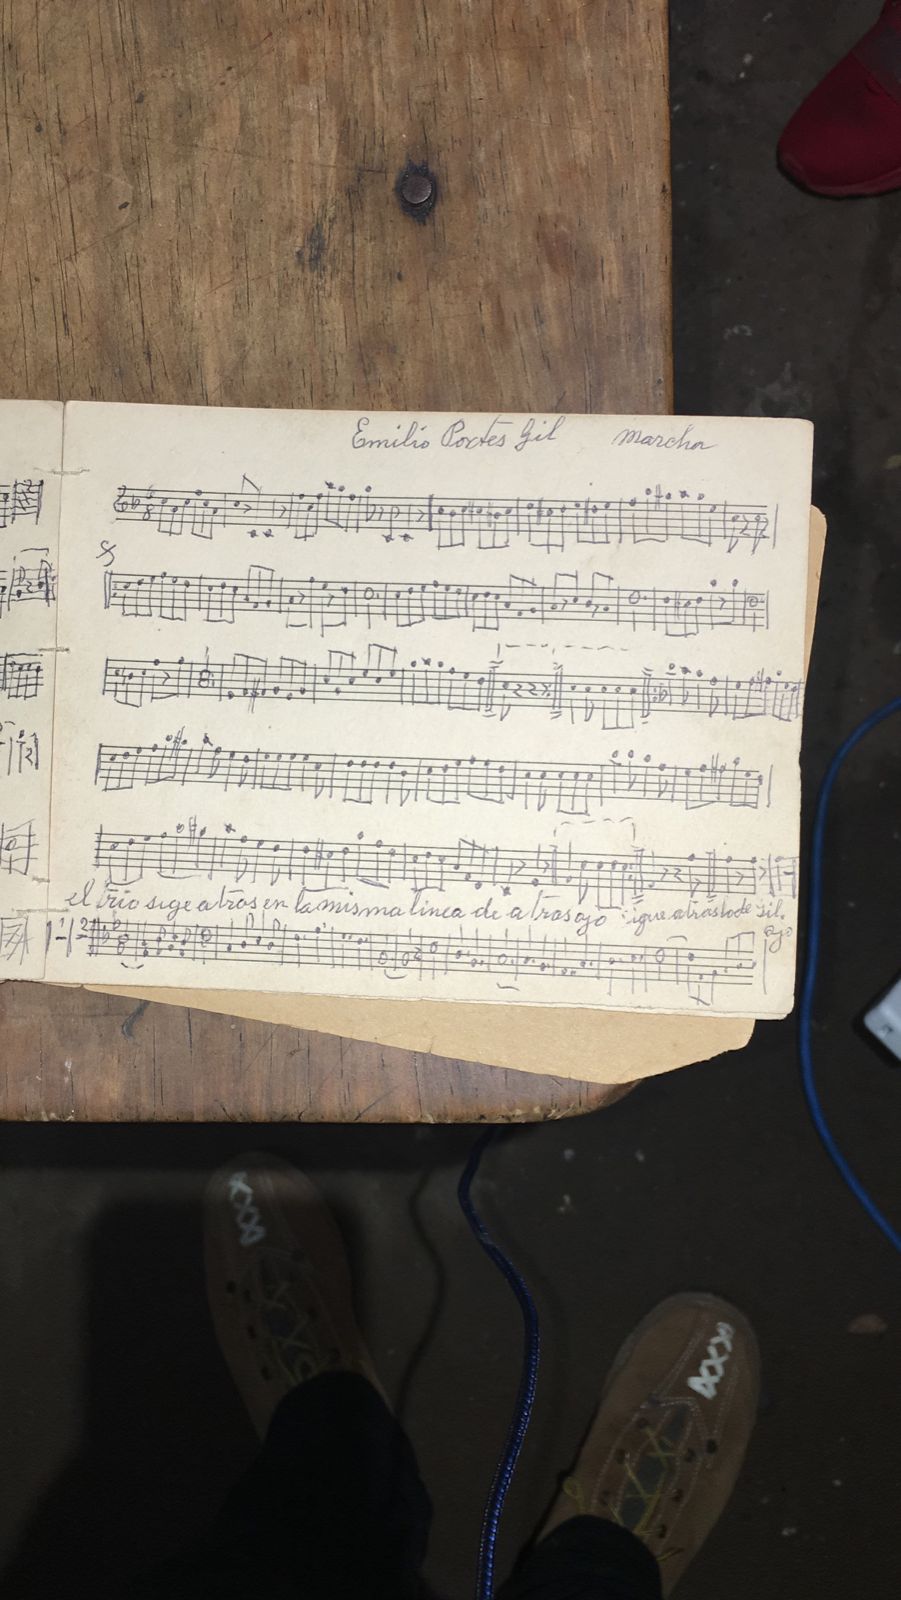 Emilio Portes Gil marcha
el trio sige atras en la misma linea de atras ojo sigue atras lode sil.
ojo